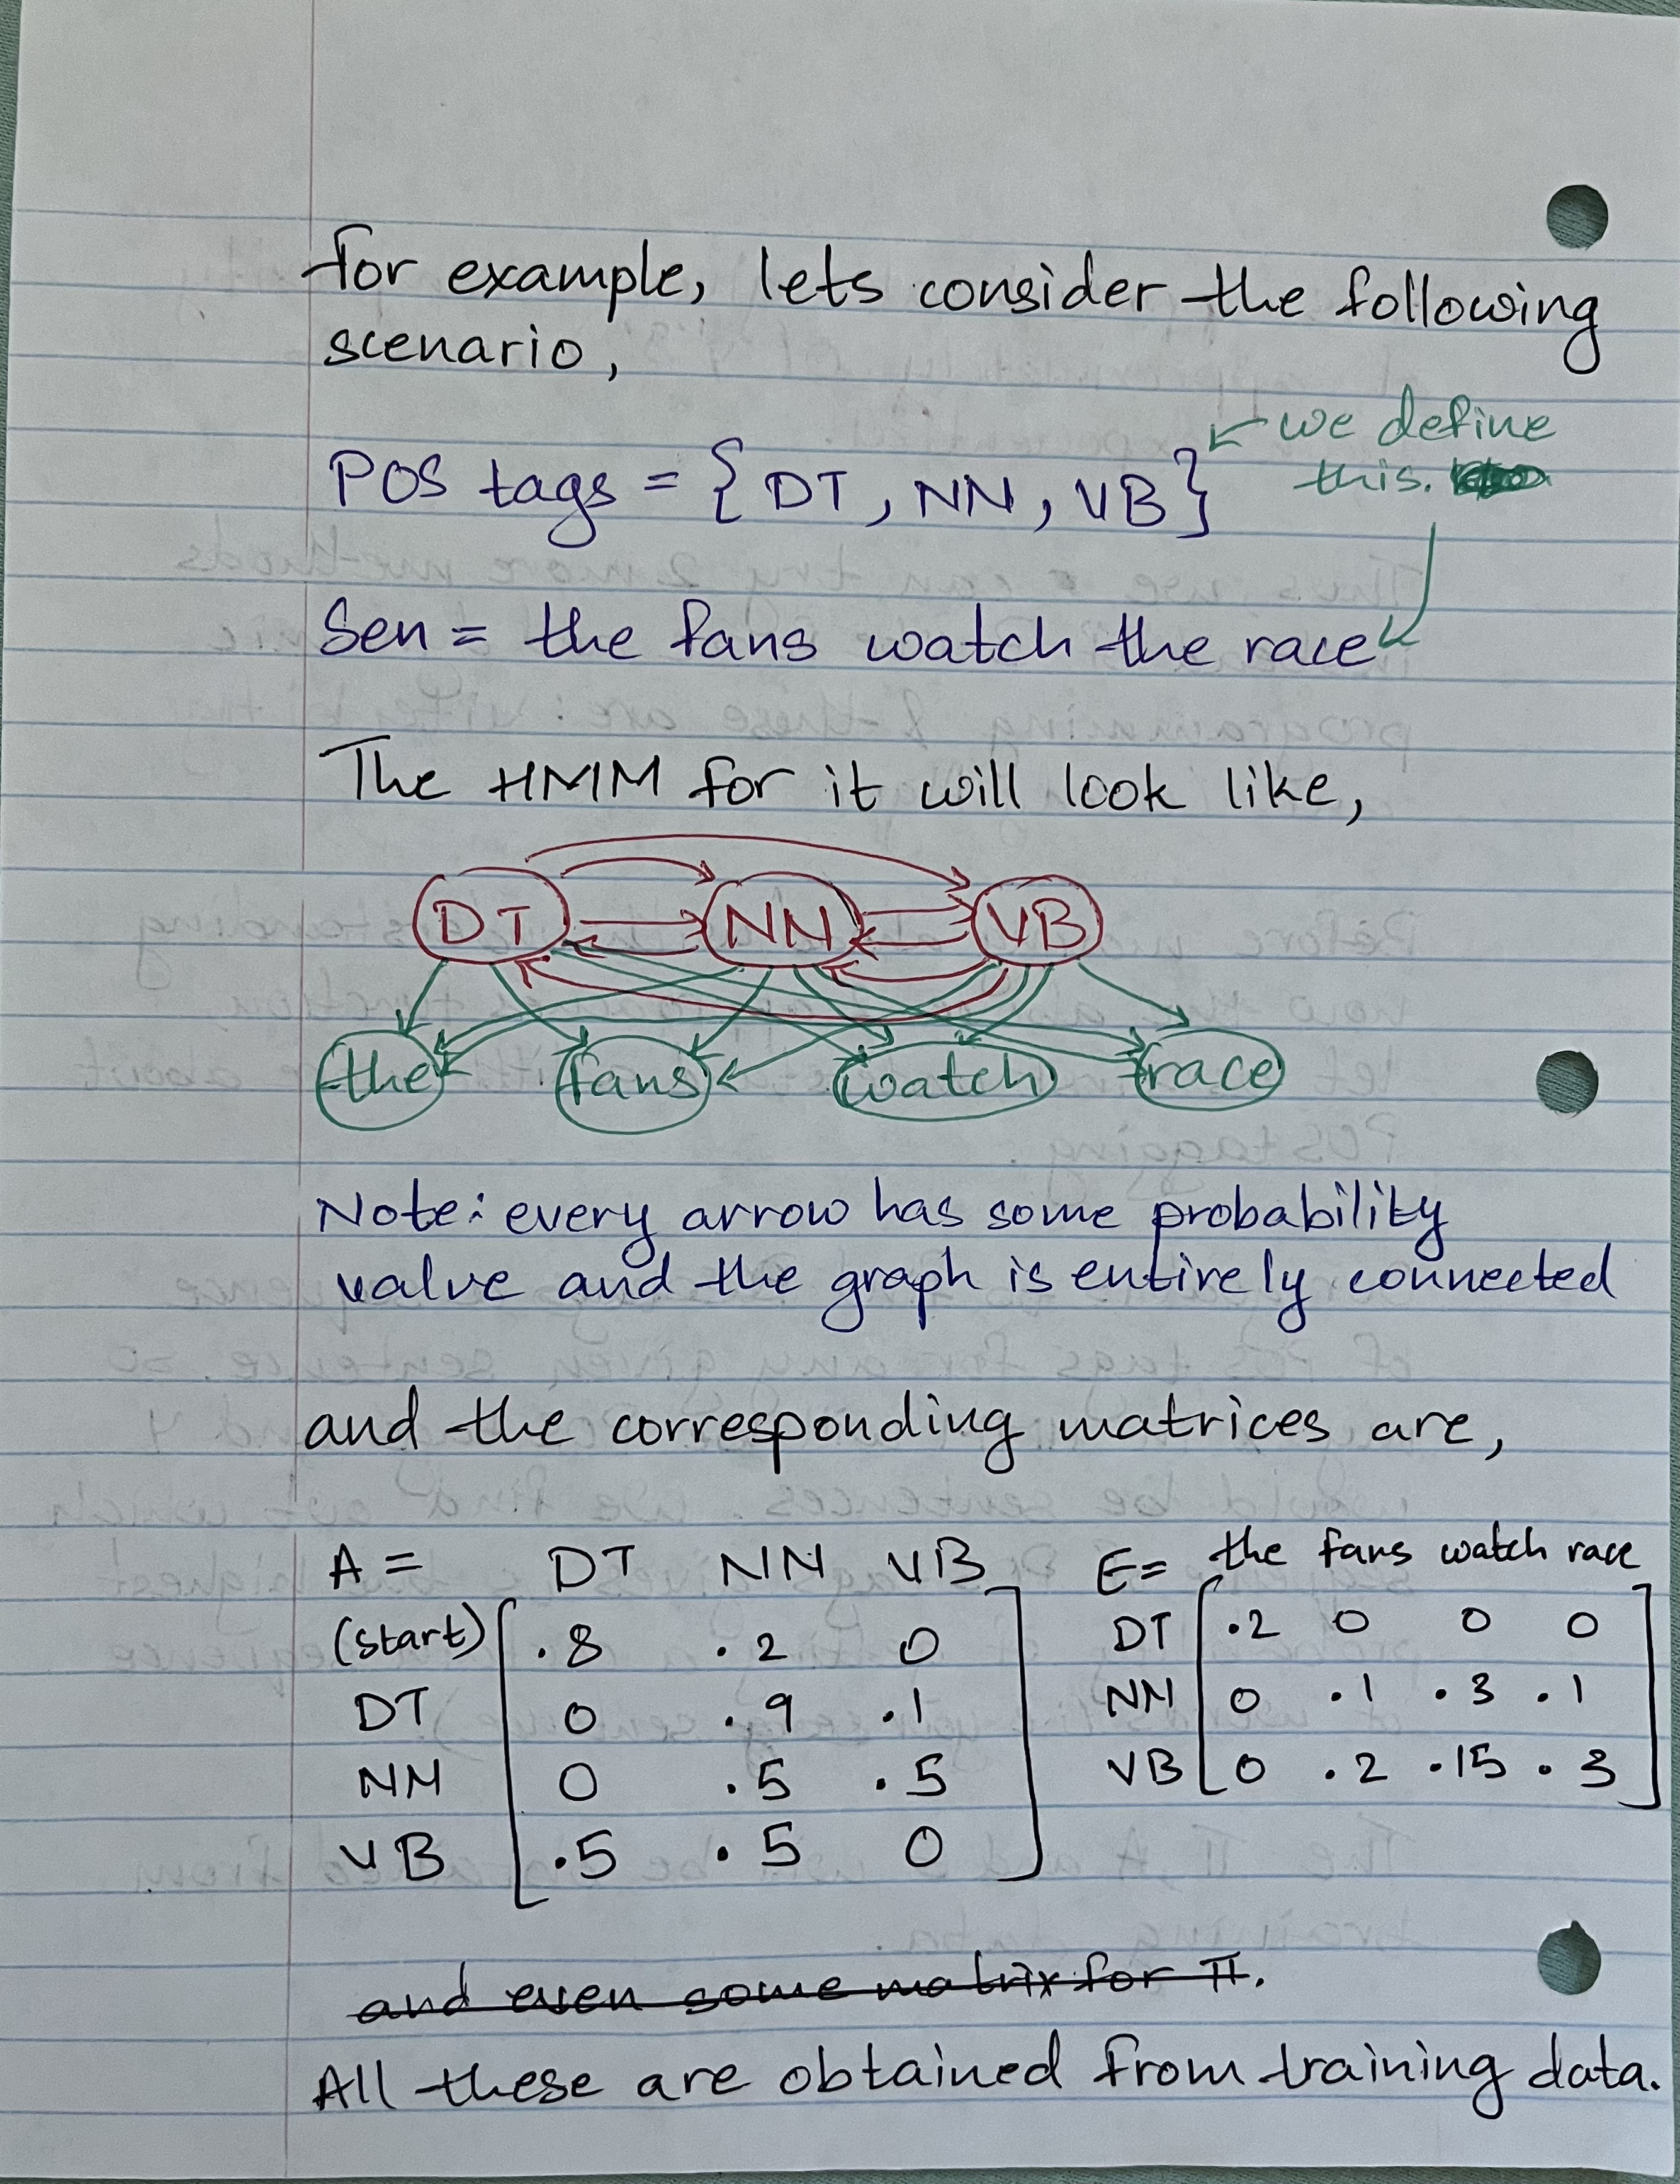 for example, lets consider the following
scenario,
we define
this.
POS tags = { DT, NN, VB }
Sen = the fans watch the race
The HMM for it will look like,
DT NN VB
the fans watch race
Note: every arrow has some probability
value and the graph is entirely connected
and the corresponding matrices are,
A = DT NN VB E= the fans watch race
(start) .8 .2 0 DT .2 0 0 0
DT 0 .9 .1 NN 0 .1 .3 .1
NN 0 .5 .5 VB 0 .2 .15 .3
VB .5 .5 0
and even some matrix for π.
All these are obtained from training data.